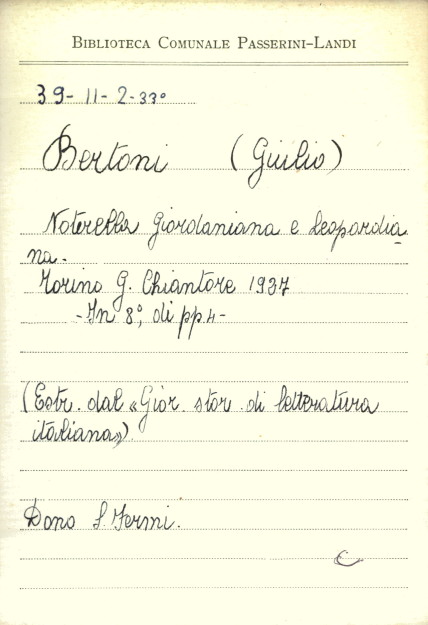 BIBLIOTECA COMUNALE PASSERINI-LANDI
39-11-2-33°
Bertoni (Giulio)
Noterella Giordaniana e leopardia
na-
Torino G. Chiantore 1937
-In 8°, di pp. 4-
(Estr. dal «Gior. stor. di letteratura
italiana»)
Dono S. Fermi.
C